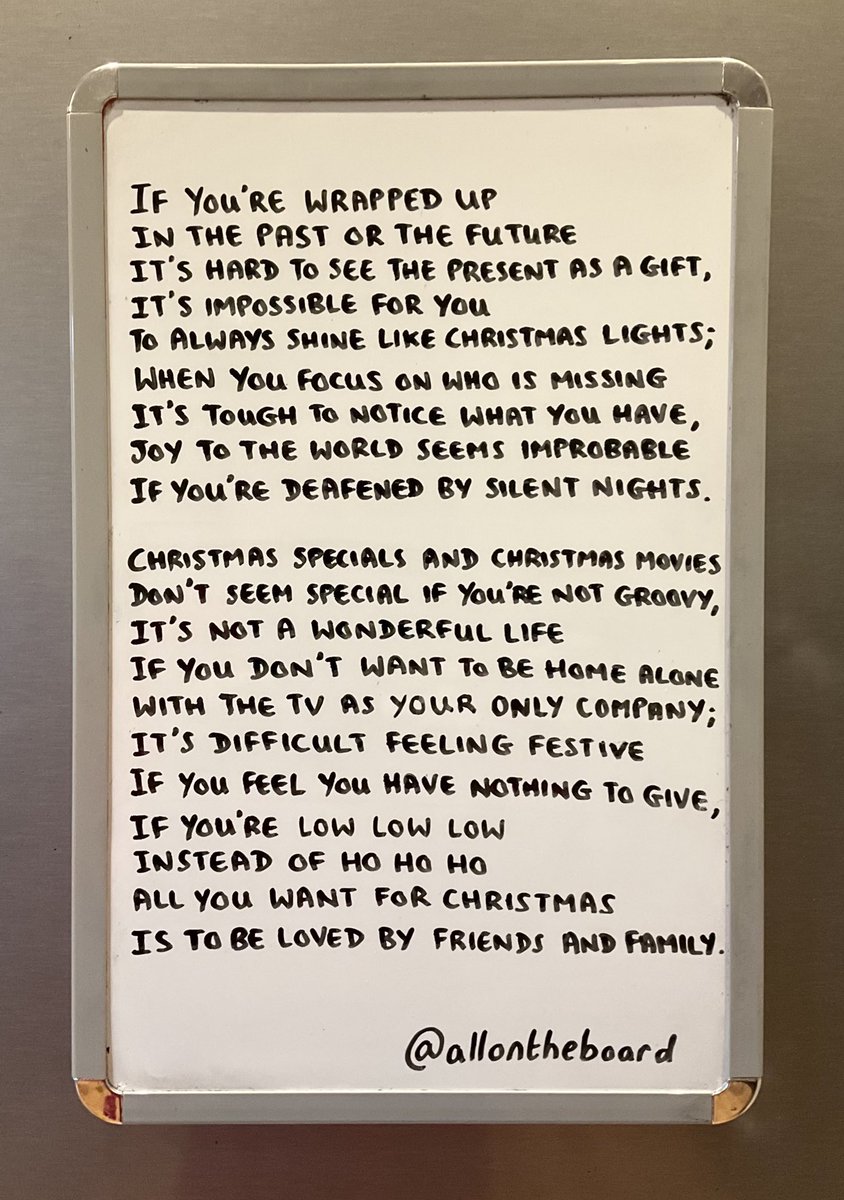 IF YOU'RE WRAPPED UP
IN THE PAST OR THE FUTURE
IT'S HARD TO SEE THE PRESENT AS A GIFT,
IT'S IMPOSSIBLE FOR YOU
TO ALWAYS SHINE LIKE CHRISTMAS LIGHTS;
WHEN YOU FOCUS ON WHO IS MISSING
IT'S TOUGH TO NOTICE WHAT YOU HAVE,
JOY TO THE WORLD SEEMS IMPROBABLE
IF YOU'RE DEAFENED BY SILENT NIGHTS.
CHRISTMAS SPECIALS AND CHRISTMAS MOVIES
DON'T SEEM SPECIAL IF YOU'RE NOT GROOVY,
IT'S NOT A WONDERFUL LIFE
IF YOU DON'T WANT TO BE HOME ALONE
WITH THE TV AS YOUR ONLY COMPANY;
IT'S DIFFICULT FEELING FESTIVE
IF YOU FEEL YOU HAVE NOTHING TO GIVE,
IF YOU'RE LOW LOW LOW
INSTEAD OF HO HO HO
ALL YOU WANT FOR CHRISTMAS
IS TO BE LOVED BY FRIENDS AND FAMILY.
@allontheboard